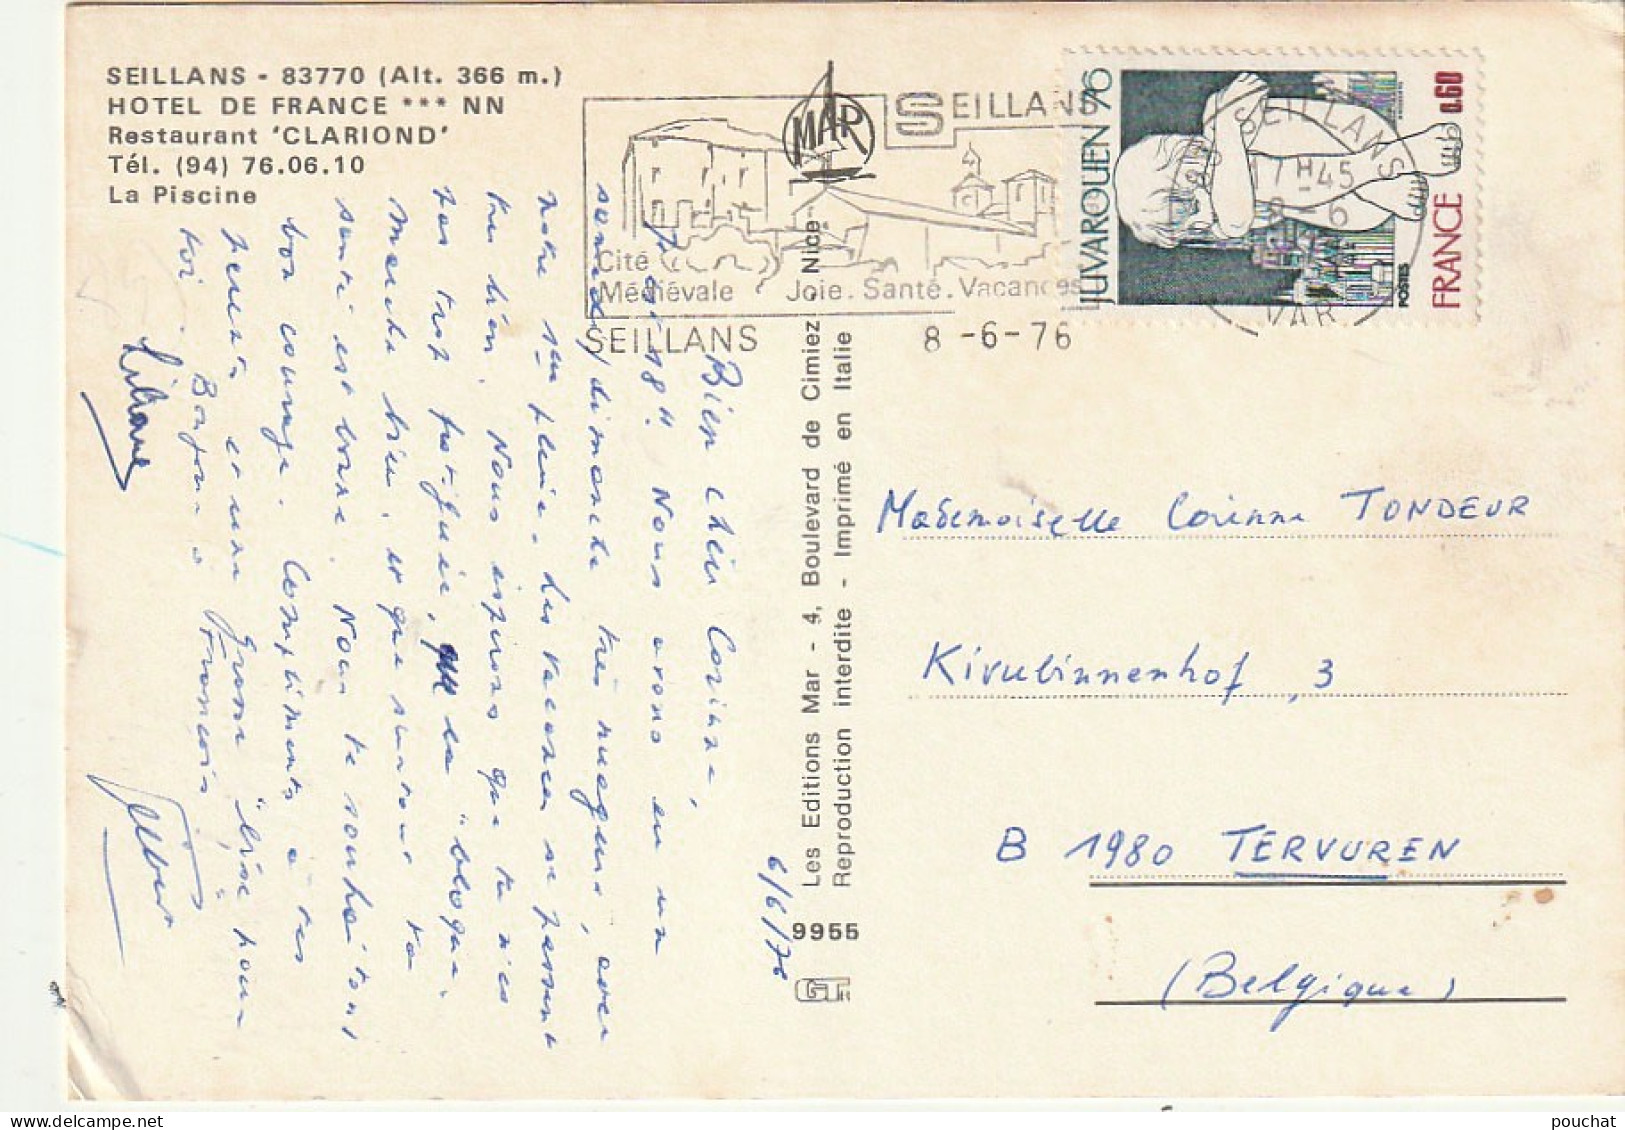 SEILLANS - 83770 (Alt. 366 m.)
HOTEL DE FRANCE *** NN
Restaurant 'CLARIOND'
Tél. (94) 76.06.10
La Piscine
MAR
SEILLANS
Cité
Médiévale
Joie. Santé. Vacances
SEILLANS
8 -6-76
SEILLANS
17 H 45
8 - 6
VAR
JUVAROUEN 76
0.60
FRANCE
POSTES
6/6/76
Bien chère Corinne,
18h. Nous avons eu un
samedi/dimanche très nuageux, avec
notre 1ère pluie. Les vacances se passent
très bien. Nous espérons que tu n'es
pas trop fatiguée, la "bloque"
marche bien, et que surtout ta
santé est bonne. Nous te souhaitons
bon courage. Compliments à tes
parents et une grosse "bise" pour
toi. Bonjour à François
Liliane
Gilbert
Les Editions Mar - 4, Boulevard de Cimiez, Nice
Reproduction interdite - Imprimé en Italie
9955
Mademoiselle Corinne TONDEUR
Kivubinnenhof, 3
B 1980 TERVUREN
(Belgique)
pouchat